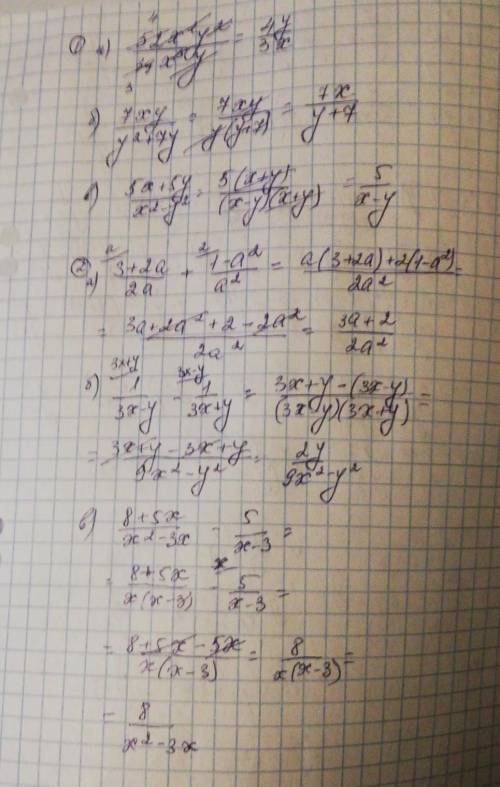 ① а) 52x²y²/39x³y = 4y/3x
б) 7xy/y²+7y = 7xy/y(y+7) = 7x/y+7
в) 5x+5y/x²-y² = 5(x+y)/(x-y)(x+y) = 5/x-y
② а) 3+2a/2a + 1-a²/a² = a(3+2a)+2(1-a²)/2a² =
= 3a+2a²+2-2a²/2a² = 3a+2/2a²
б) 1/3x-y - 1/3x+y = 3x+y-(3x-y)/(3x-y)(3x+y) =
= 3x+y-3x+y/9x²-y² = 2y/9x²-y²
в) 8+5x/x²-3x - 5/x-3 =
= 8+5x/x(x-3) - 5/x-3 =
= 8+5x-5x/x(x-3) = 8/x(x-3) =
= 8/x²-3x